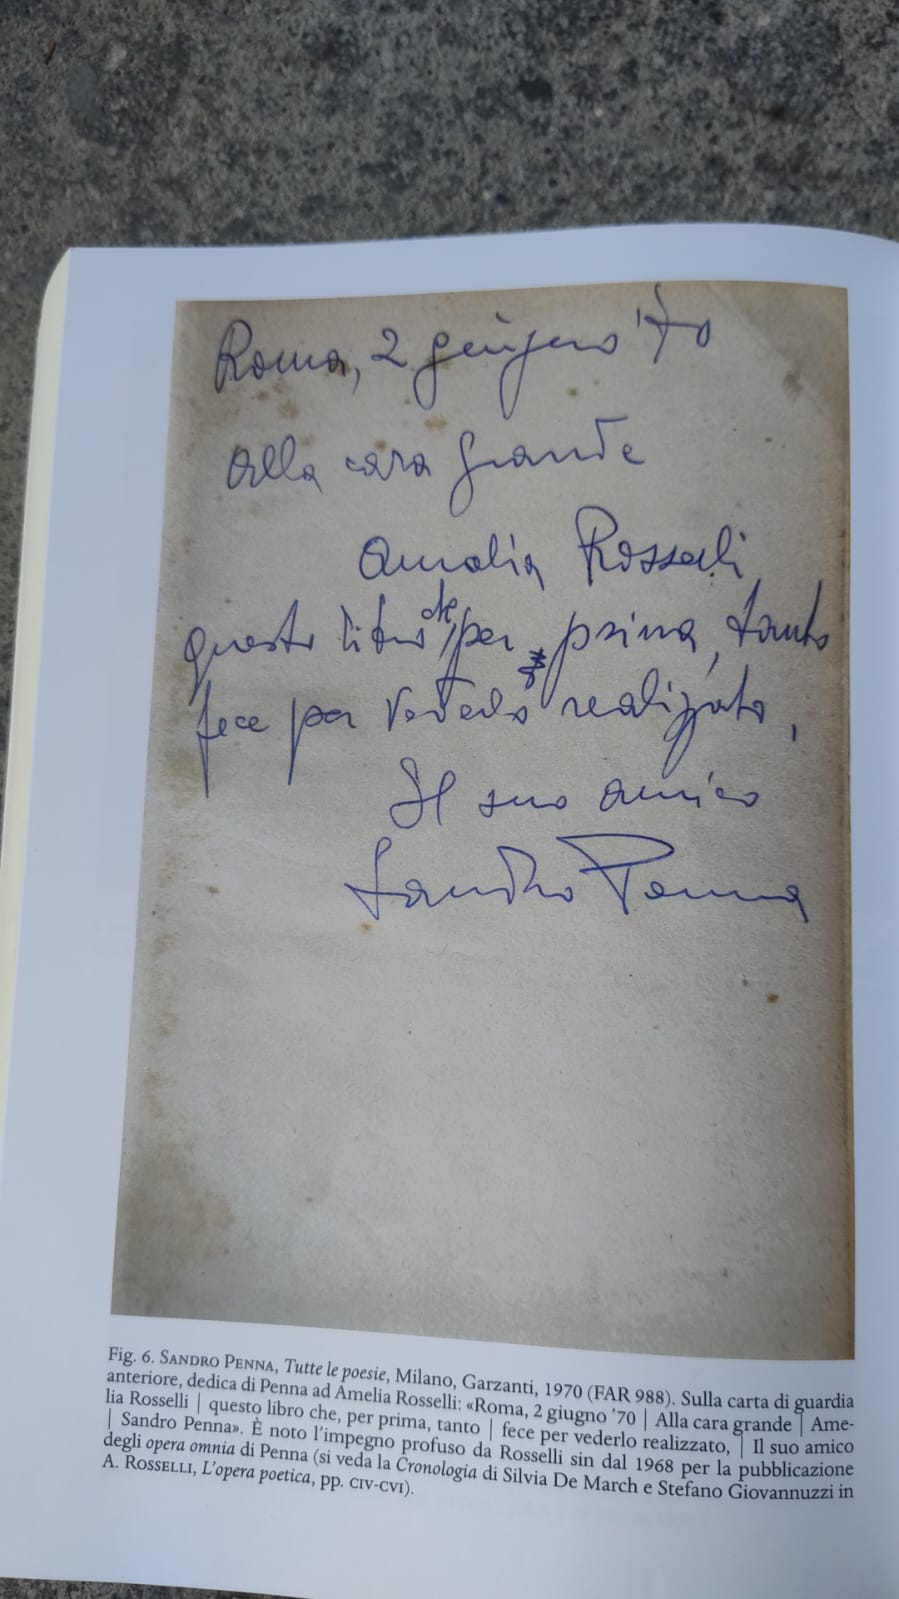 Roma, 2 giugno '70
Alla cara grande
Amelia Rosselli
questo libro che, per prima, tanto
fece per vederlo realizzato,
Il suo amico
Sandro Penna
Fig. 6. SANDRO PENNA, Tutte le poesie, Milano, Garzanti, 1970 (FAR 988). Sulla carta di guardia
anteriore, dedica di Penna ad Amelia Rosselli: «Roma, 2 giugno '70 | Alla cara grande | Ame-
lia Rosselli | questo libro che, per prima, tanto | fece per vederlo realizzato, | Il suo amico
| Sandro Penna». È noto l'impegno profuso da Rosselli sin dal 1968 per la pubblicazione
degli opera omnia di Penna (si veda la Cronologia di Silvia De March e Stefano Giovannuzzi in
A. ROSSELLI, L'opera poetica, pp. CIV-CVI).